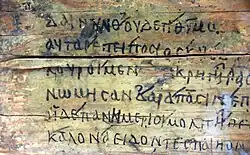 ΔΑΙΝΥΝΘΟΥΔΕΤΙΘΥΜΟ
ΑΥΤΑΡΕΠΕΙΠΟϹΙΟϹ
ΚΟΥΡΟΙΜΕΝ ΚΡΗΤΗΡΑϹ
ΝΩΜΗϹΑΝ ΔΑΡΑΠΑϹΙΝ
ΟΙΔΕΠΑΝΗΜΕΡΙΟΙΜΟΛΠΗ
ΚΑΛΟΝΑΕΙΔΟΝΤΕϹΠΑΙΗΟΝ